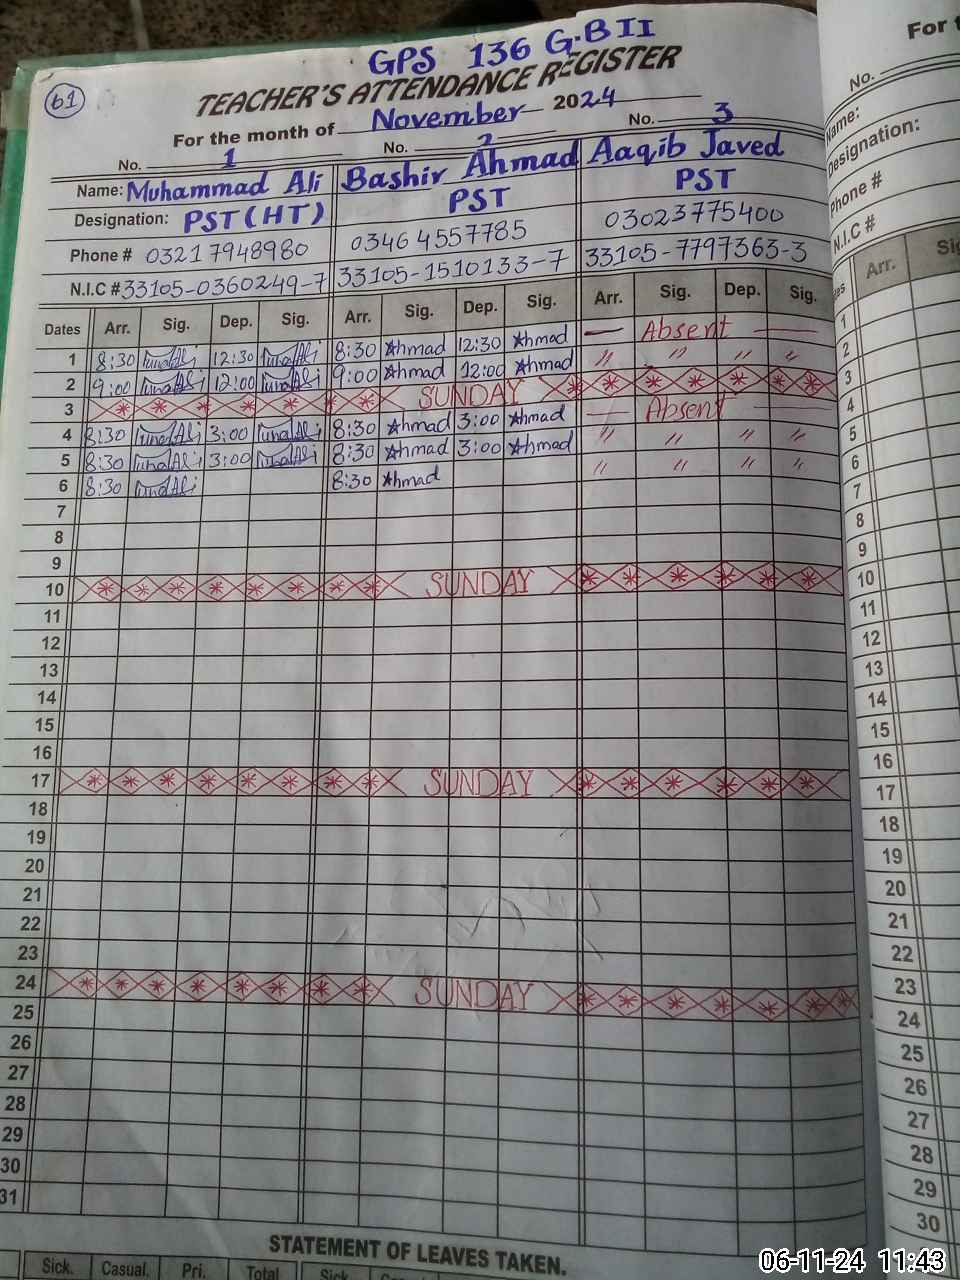 GPS 136 G.B II
61
TEACHER'S ATTENDANCE REGISTER
For the month of November 2024
No. 1 No. 2 No. 3
Name: Muhammad Ali Bashir Ahmad Aaqib Javed
Designation: PST (HT) PST PST
Phone # 03217948980 03464557785 03023775400
N.I.C # 33105-0360249-7 33105-1510133-7 33105-7797363-3
Dates Arr. Sig. Dep. Sig. Arr. Sig. Dep. Sig. Arr. Sig. Dep. Sig.
1 8:30 12:30 8:30 Ahmad 12:30 Ahmad — Absent —
2 9:00 12:00 9:00 Ahmad 12:00 Ahmad " " " "
3 SUNDAY
4 8:30 3:00 8:30 Ahmad 3:00 Ahmad — Absent —
5 8:30 3:00 8:30 Ahmad 3:00 Ahmad " " " "
6 8:30 8:30 Ahmad " " " "
7
8
9
10 SUNDAY
11
12
13
14
15
16
17 SUNDAY
18
19
20
21
22
23
24 SUNDAY
25
26
27
28
29
30
31
STATEMENT OF LEAVES TAKEN.
Sick. Casual. Pri. Total Sick.
For
No.
Name:
Designation:
Phone #
N.I.C #
Arr.
1
2
3
4
5
6
7
8
9
10
11
12
13
14
15
16
17
18
19
20
21
22
23
24
25
26
27
28
29
30
06-11-24 11:43